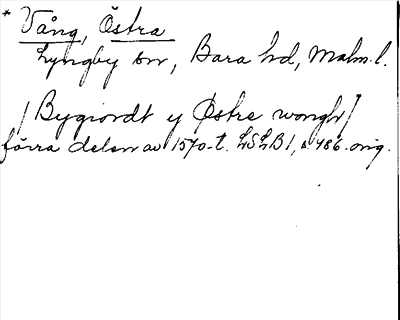 * Vång, Östra
Lyngby sn, Bara hd, Malm.l.
[Bygiordt y Østre wongh]
förra delen av 1570-t. LSLB1, s 486. orig.